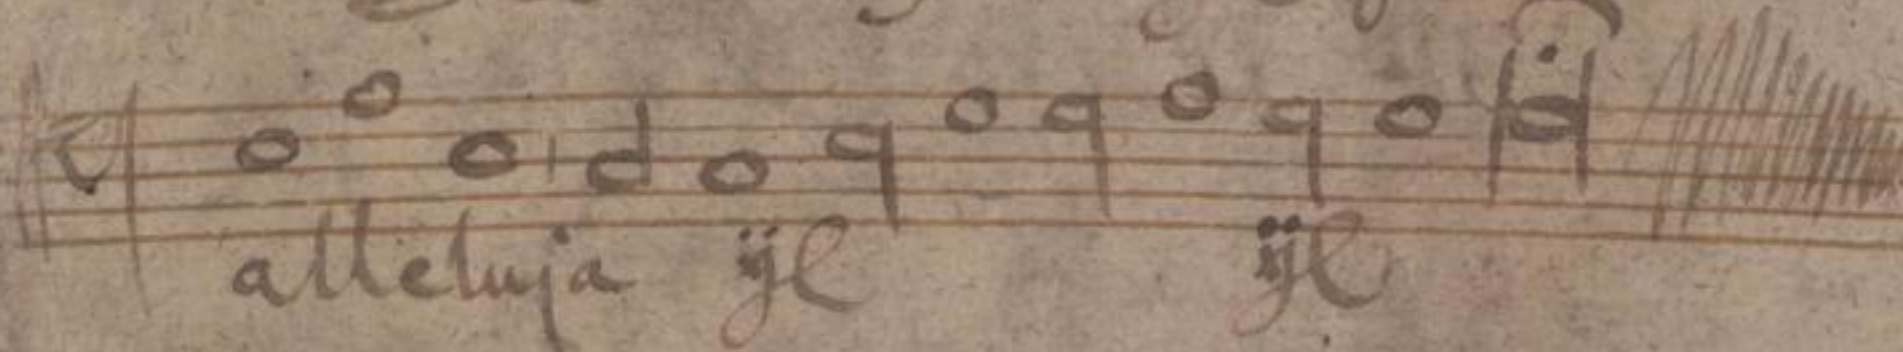 alleluja ij ij